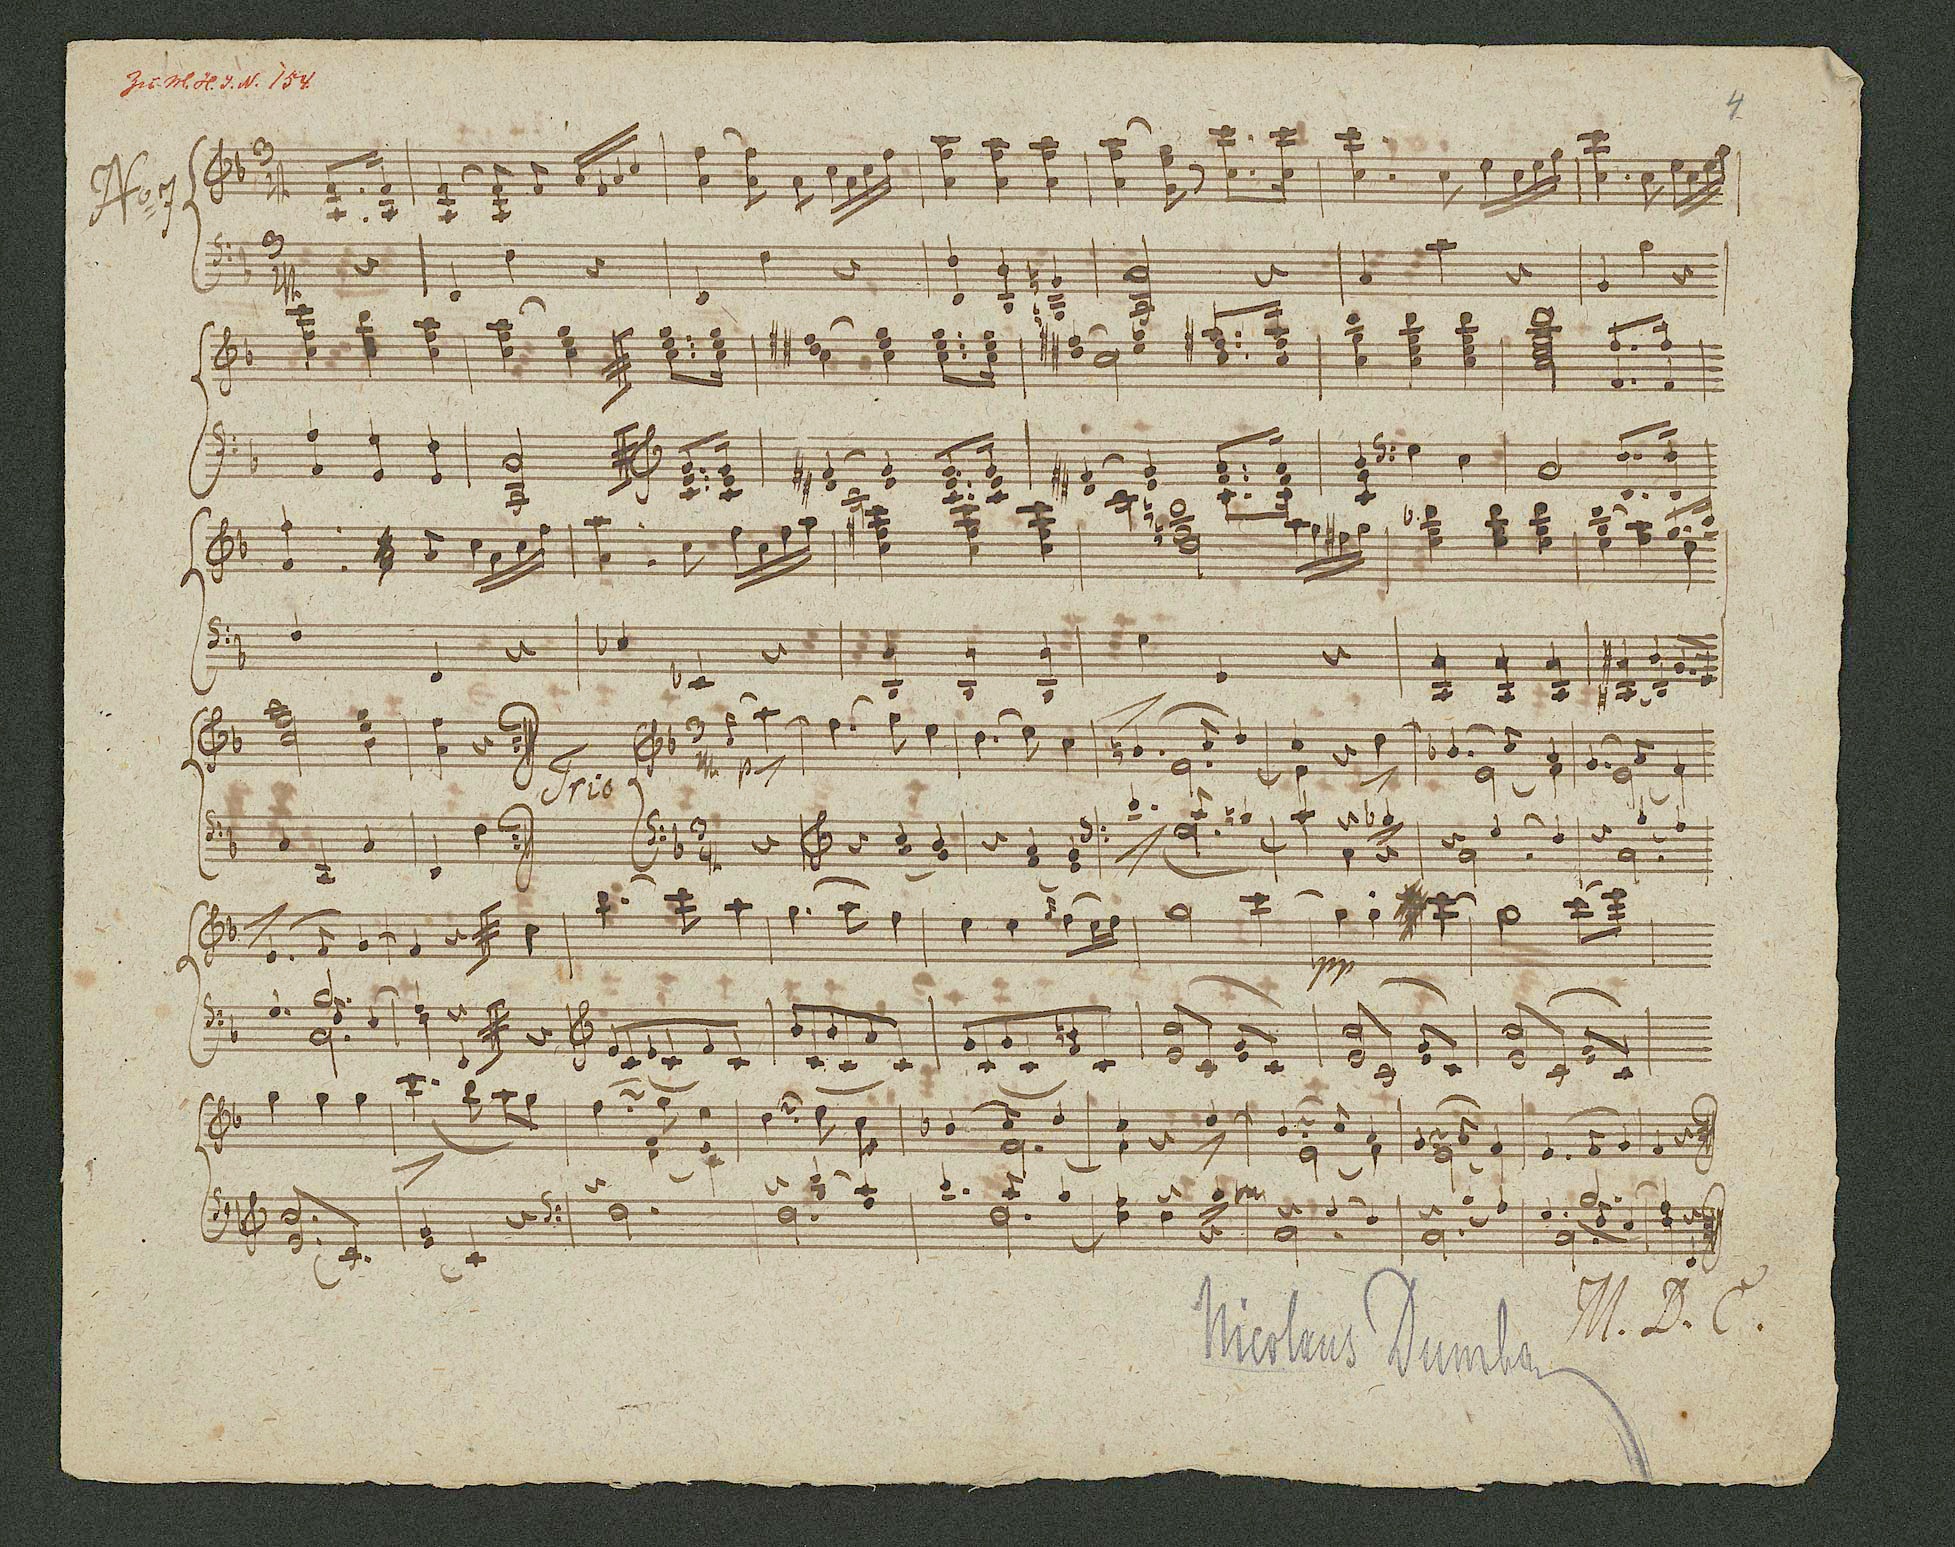 Zu M.H.I.N. 154.
4
No 7
Trio
p
pp
M. D. C.
Nicolaus Dumba